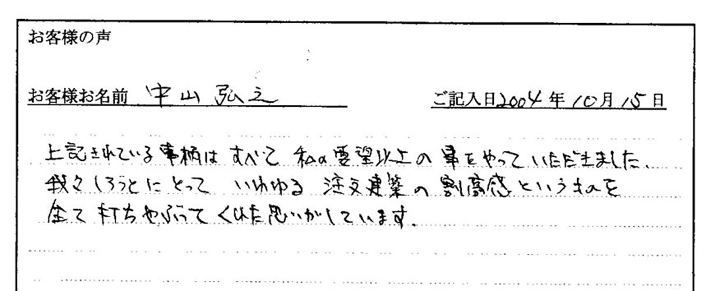 お客様の声
お客様お名前 中山 弘之 ご記入日2004年10月15日
上記されている事柄はすべて 私の要望以上の事をやっていただきました.
我々しろうとにとって いわゆる 注文建築の割高感というものを
全て打ちやぶってくれた思いがしています.